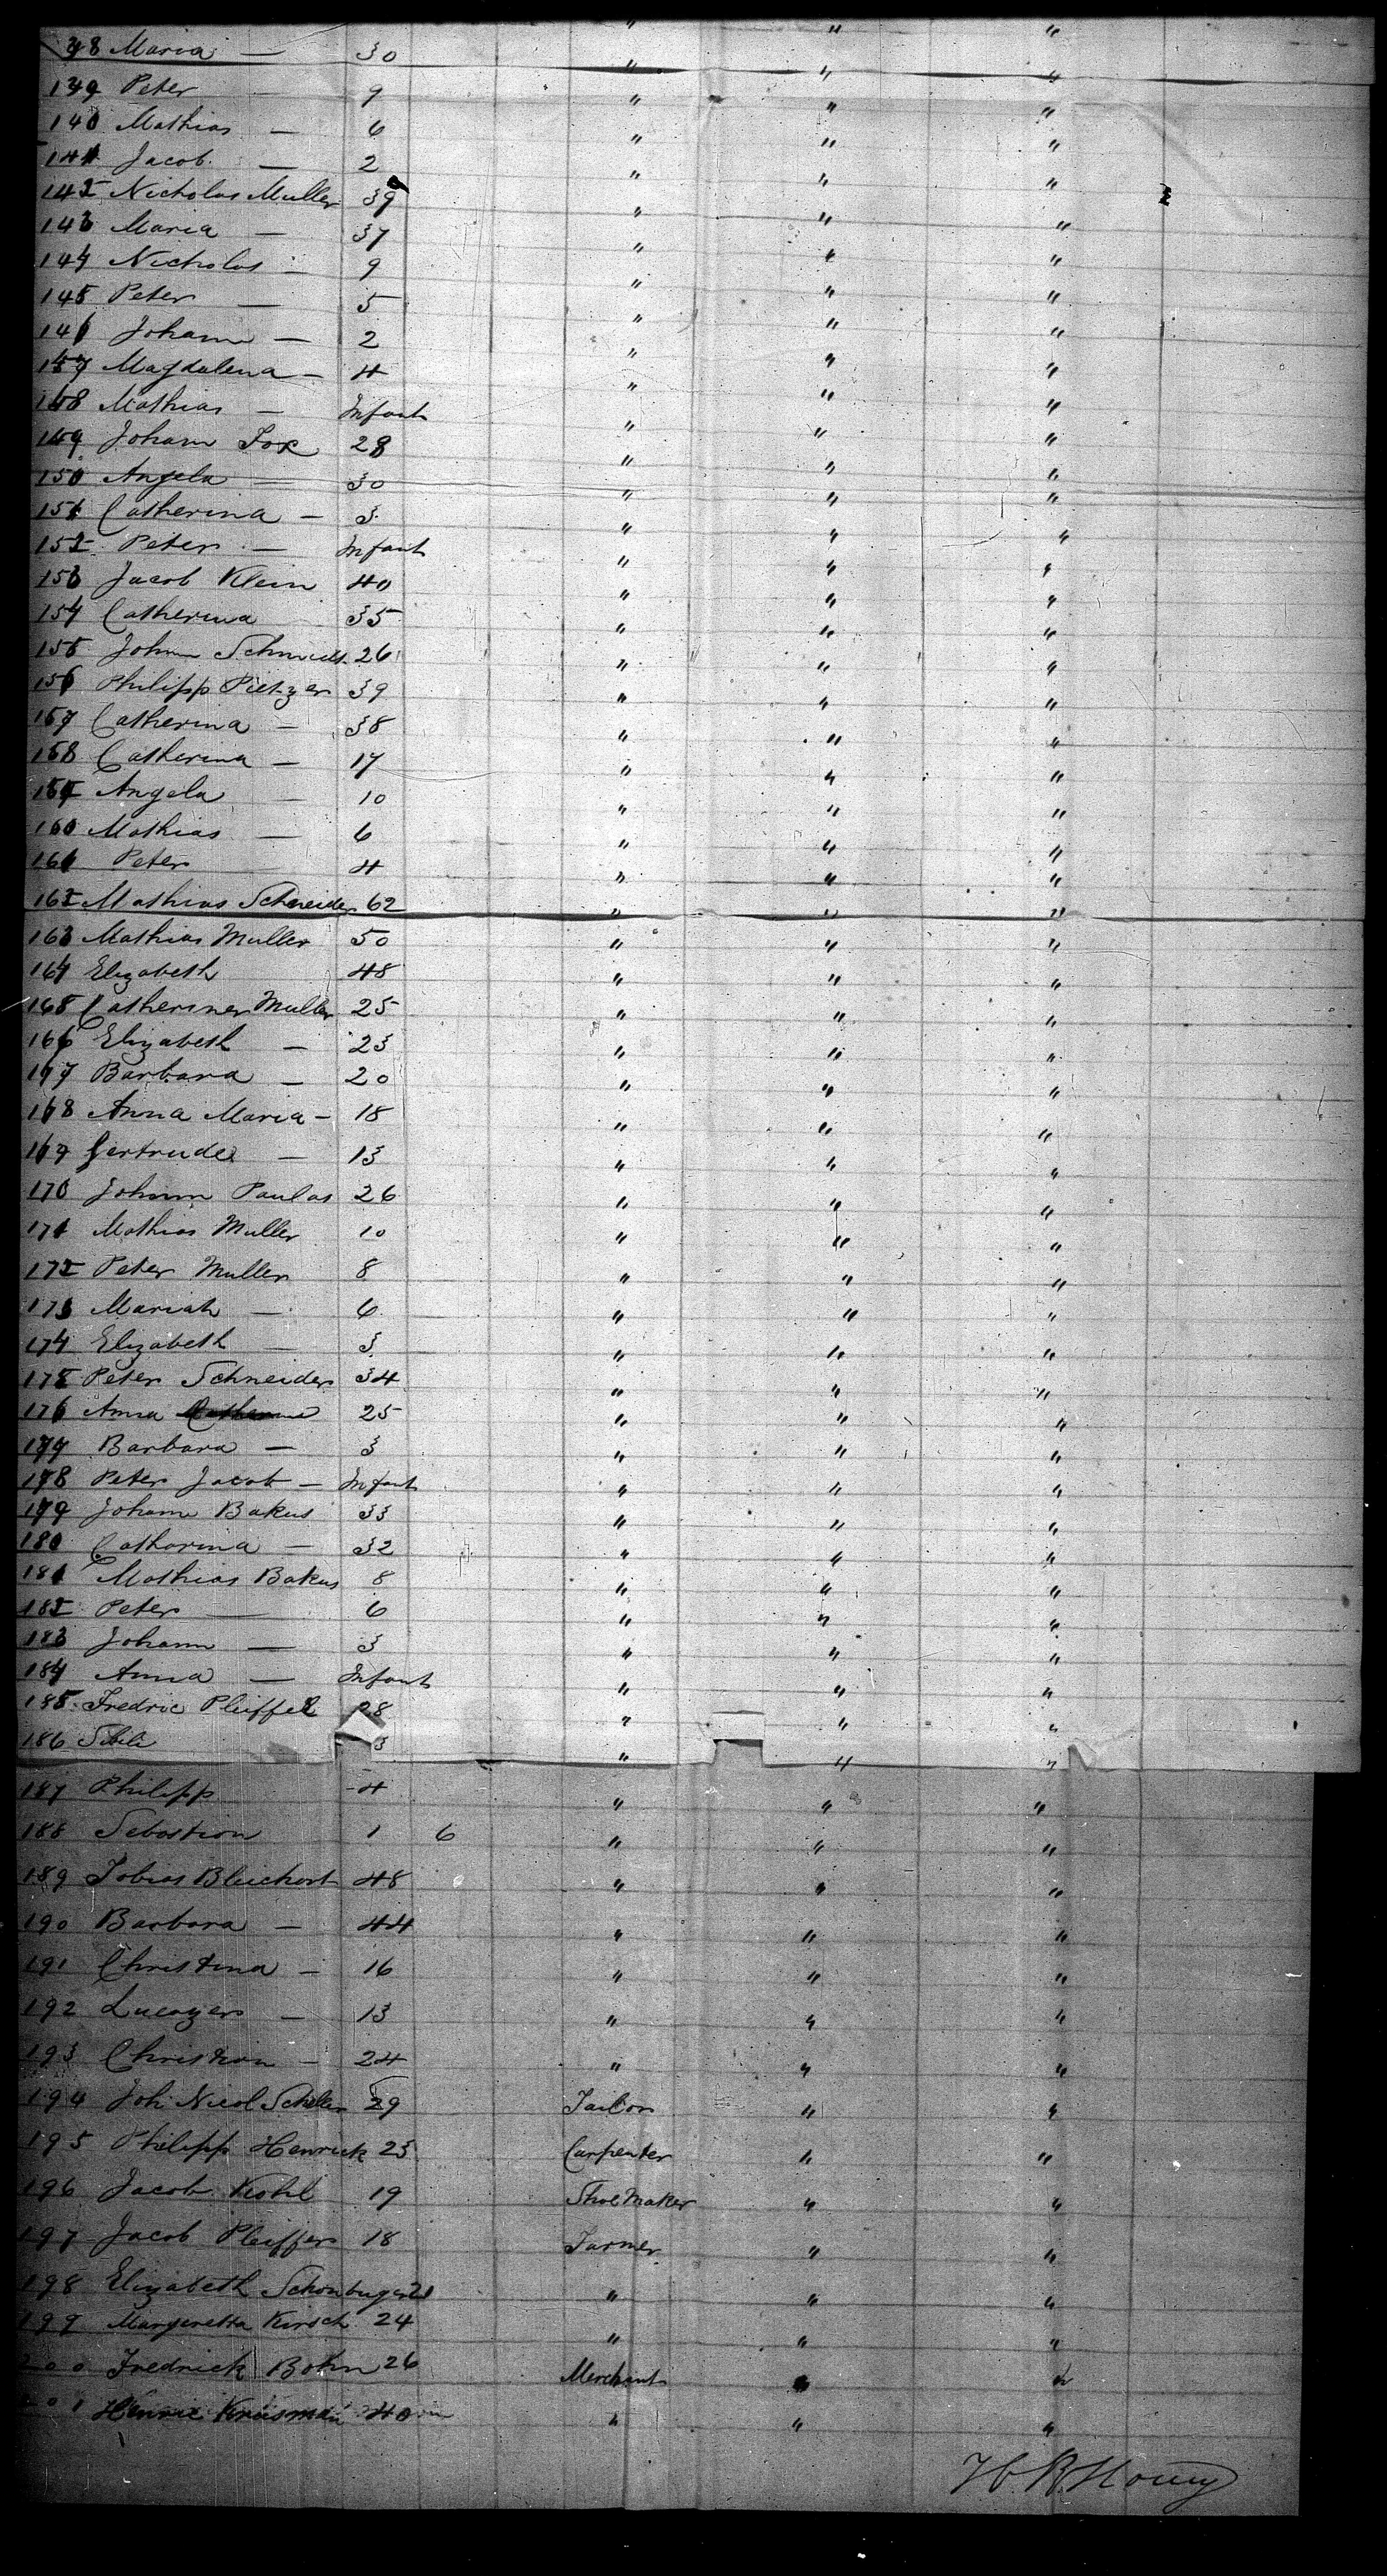 138 Maria — 30 " " "
139 Peter 9 " " "
140 Mathias — 6 " " "
141 Jacob — 2 " " "
142 Nicholas Muller 39 " " "
143 Maria — 37 " " "
144 Nicholas — 9 " " "
145 Peter — 5 " " "
146 Johann — 2 " " "
147 Magdalena — 4 " " "
148 Mathias — Infant " " "
149 Johann Fox 28 " " "
150 Angela — 30 " " "
151 Catherina — 3 " " "
152 Peter — Infant " " "
153 Jacob Klein 40 " " "
154 Catherina 35 " " "
155 Johann Schmidt 26 " " "
156 Philipp Pietzer 39 " " "
157 Catherina — 38 " " "
158 Catherina — 17 " " "
159 Angela — 10 " " "
160 Mathias — 6 " " "
161 Peter 4 " " "
162 Mathias Schneider 62 " " "
163 Mathias Muller 50 " " "
164 Elizabeth 48 " " "
165 Catherine Muller 25 " " "
166 Elizabeth — 23 " " "
167 Barbara — 20 " " "
168 Anna Maria — 18 " " "
169 Gertrude — 13 " " "
170 Johann Paulas 26 " " "
171 Mathias Muller 10 " " "
172 Peter Muller 8 " " "
173 Mariah — 6 " " "
174 Elizabeth — 3 " " "
175 Peter Schneider 34 " " "
176 Anna Catherine 25 " " "
177 Barbara — 3 " " "
178 Peter Jacob — Infant " " "
179 Johann Bakus 33 " " "
180 Catharina — 32 " " "
181 Mathias Bakus 8 " " "
182 Peter — 6 " " "
183 Johann — 3 " " "
184 Anna — Infant " " "
185 Fredric Pleiffer 28 " " "
186 Sibili 3 " " "
187 Philipp 4 " " "
188 Sebastian 1 6 " " "
189 Tobias Bleichert 48 " " "
190 Barbara — 44 " " "
191 Christina — 16 " " "
192 Lucazer — 13 " " "
193 Christian — 24 " " "
194 Joh. Nicol Scheller 29 Tailor " "
195 Philipp Henrick 23 Carpenter " "
196 Jacob Kohl 19 Shoe Maker " "
197 Jacob Pleiffer 18 Farmer " "
198 Elizabeth Schonbuger 21 " " "
199 Margaretta Kirsch 24 " " "
200 Fredrick Bohn 26 Merchant " "
201 Henric Kreisman 40 " " "